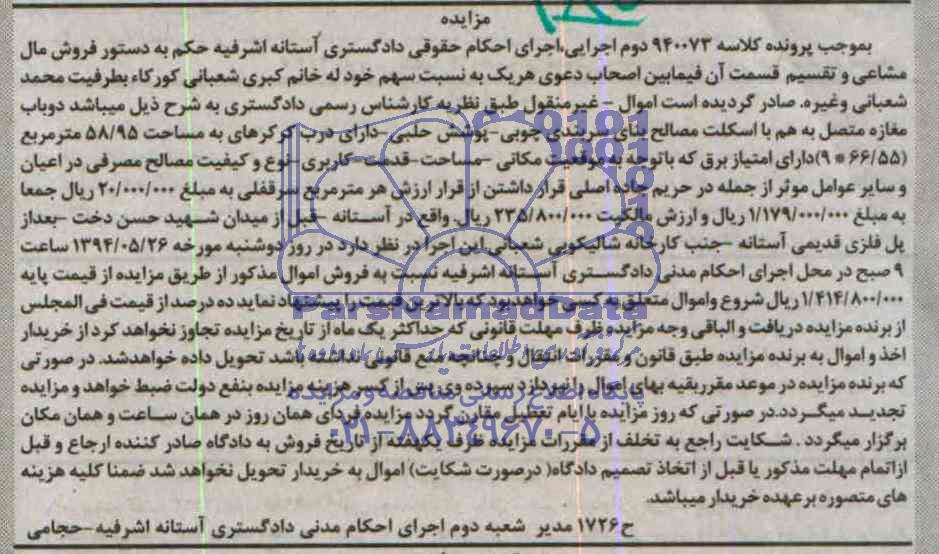 مزایده
بموجب پرونده کلاسه ۹۴۰۰۷۳ دوم اجرایی،اجرای احکام حقوقی دادگستری آستانه اشرفیه حکم به دستور فروش مال
مشاعی و تقسیم قسمت آن فیمابین اصحاب دعوی هریک به نسبت سهم خود له خانم کبری شعبانی کورکاء بطرفیت محمد
شعبانی وغیره. صادر گردیده است اموال – غیرمنقول طبق نظریه کارشناس رسمی دادگستری به شرح ذیل میباشد دوباب
مغازه متصل به هم با اسکلت مصالح بنای سربندی چوبی-پوشش حلبی-دارای درب کرکرهای به مساحت ۵۸/۹۵ مترمربع
(۶۶/۵۵ * ۹)دارای امتیاز برق که باتوجه به موقعیت مکانی -مساحت-قدمت-کاربری-نوع و کیفیت مصالح مصرفی در اعیان
و سایر عوامل موثر از جمله در حریم جاده اصلی قرار داشتن از قرار ارزش هر مترمربع سرقفلی به مبلغ ۲۰/۰۰۰/۰۰۰ ریال جمعا
به مبلغ ۱/۱۷۹/۰۰۰/۰۰۰ ریال و ارزش مالکیت ۲۳۵/۸۰۰/۰۰۰ ریال. واقع در آستانه -قبل از میدان شهید حسن دخت -بعداز
پل فلزی قدیمی آستانه -جنب کارخانه شالیکوبی شعبانی.این اجرا در نظر دارد در روز دوشنبه مورخه ۱۳۹۴/۰۵/۲۶ ساعت
۹ صبح در محل اجرای احکام مدنی دادگستری آستانه اشرفیه نسبت به فروش اموال مذکور از طریق مزایده از قیمت پایه
۱/۴۱۴/۸۰۰/۰۰۰ ریال شروع واموال متعلق به کسی خواهدبود که بالاترین قیمت را پیشنهاد نماید ده درصد از قیمت فی المجلس
از برنده مزایده دریافت و الباقی وجه مزایده ظرف مهلت قانونی که حداکثر یک ماه از تاریخ مزایده تجاوز نخواهد کرد از خریدار
اخذ و اموال به برنده مزایده طبق قانون و مقررات انتقال و چنانچه منع قانونی نداشته باشد تحویل داده خواهدشد. در صورتی
که برنده مزایده در موعد مقرر بقیه بهای اموال را نپردازد سپرده وی پس از کسر هزینه مزایده بنفع دولت ضبط خواهد و مزایده
تجدید میگردد.در صورتی که روز مزایده با ایام تعطیل مقارن گردد مزایده فردای همان روز در همان ساعت و همان مکان
برگزار میگردد . شکایت راجع به تخلف از مقررات مزایده ظرف یکهفته از تاریخ فروش به دادگاه صادر کننده ارجاع و قبل
ازاتمام مهلت مذکور یا قبل از اتخاذ تصمیم دادگاه( درصورت شکایت) اموال به خریدار تحویل نخواهد شد ضمنا کلیه هزینه
های متصوره برعهده خریدار میباشد.
ح ۱۷۲۶ مدیر شعبه دوم اجرای احکام مدنی دادگستری آستانه اشرفیه-حجامی
ParsNamadData
پایگاه اطلاع رسانی مناقصه و مزایده
۰۲۱-۸۸۳۴۹۶۷۰-۵